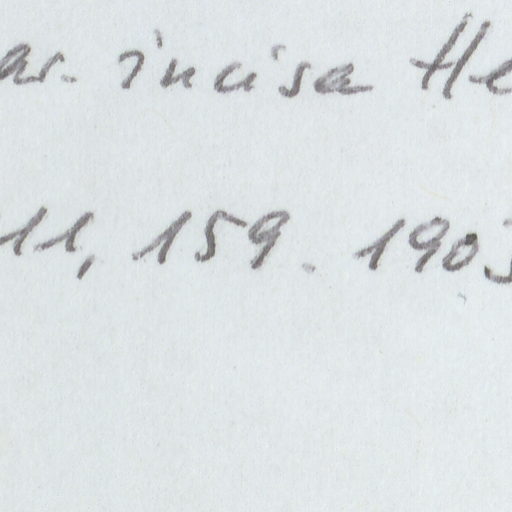 ar. incisa He
11, 159. 1903